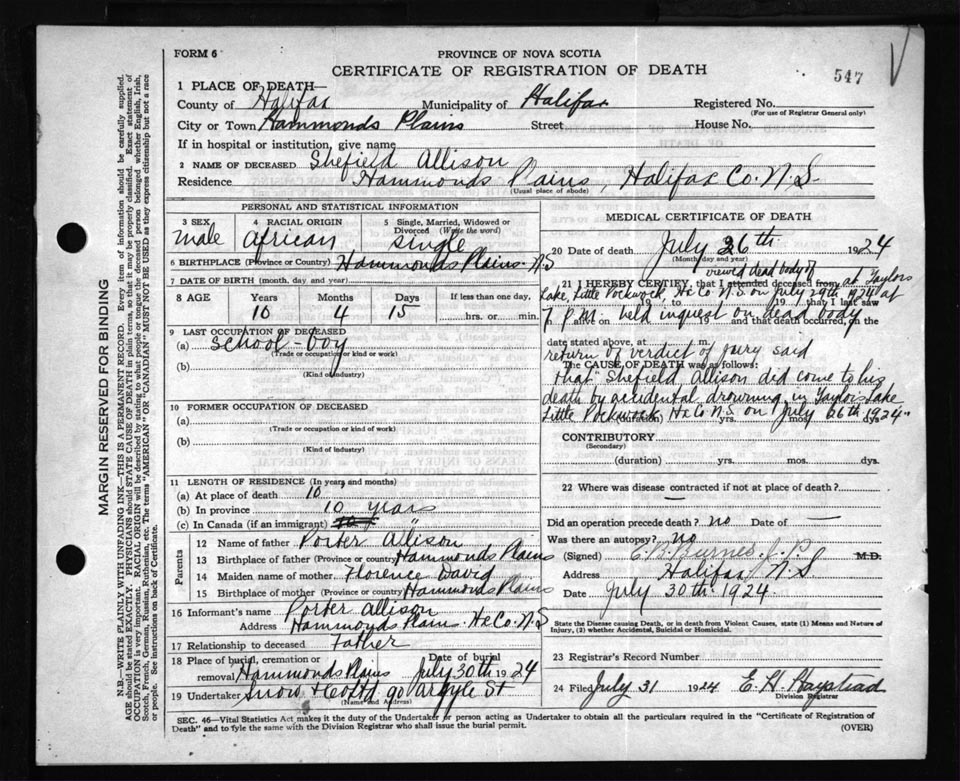 FORM 6
PROVINCE OF NOVA SCOTIA
CERTIFICATE OF REGISTRATION OF DEATH
547
1 PLACE OF DEATH—
County of Halifax Municipality of Halifax Registered No.
(For use of Registrar General only)
City or Town Hammonds Plains Street House No.
If in hospital or institution, give name
2 NAME OF DECEASED Shefield Allison
Residence Hammonds Plains, Halifax Co. N.S.
(Usual place of abode)
PERSONAL AND STATISTICAL INFORMATION
3 SEX 4 RACIAL ORIGIN 5 Single, Married, Widowed or Divorced (Write the word)
male African single
6 BIRTHPLACE (Province or Country) Hammonds Plains N.S
7 DATE OF BIRTH (month, day and year)
8 AGE Years Months Days If less than one day,
10 4 15 hrs. or min.
9 LAST OCCUPATION OF DECEASED
(a) school-boy
(Trade or occupation or kind or work)
(b)
(Kind of Industry)
10 FORMER OCCUPATION OF DECEASED
(a)
(Trade or occupation or kind of work)
(b)
(Kind of Industry)
11 LENGTH OF RESIDENCE (In years and months)
(a) At place of death 10
(b) In province 10 years
(c) In Canada (if an immigrant) 10 "
Parents
12 Name of father Porter Allison
13 Birthplace of father (Province or country) Hammonds Plains
14 Maiden name of mother Florence David
15 Birthplace of mother (Province or country) Hammonds Plains
16 Informant's name Porter Allison
Address Hammonds Plains. Hx Co. N.S
17 Relationship to deceased Father
18 Place of burial, cremation or removal Hammonds Plains Date of burial July 30th 1924
19 Undertaker Snow & Co Ltd 90 Argyle St
(Name and Address)
MEDICAL CERTIFICATE OF DEATH
20 Date of death July 26th 1924
(Month, day and year)
viewed dead body of
21 I HEREBY CERTIFY, that I attended deceased from at Taylors
Lake, Little Pockwock, Hx Co N.S. on July 29th 1924 at
19 to 19 , that I last saw
7 P.M. held inquest on dead body
alive on 19 and that death occurred, on the
date stated above, at m.
return of verdict of jury said
The CAUSE OF DEATH was as follows:
that "Shefield Allison did come to his
death by accidental drowning in Taylors Lake
Little Pockwock, Hx Co N.S. on July 26th 1924"
(duration) yrs. mos. dys
CONTRIBUTORY
(Secondary)
(duration) yrs. mos. dys.
22 Where was disease contracted if not at place of death?
—
Did an operation precede death? no Date of —
Was there an autopsy? no
(Signed) J.P. M.D.
Address Halifax, N.S
Date July 30th 1924.
State the Disease causing Death, or in death from Violent Causes, state (1) Means and Nature of
Injury, (2) whether Accidental, Suicidal or Homicidal.
23 Registrar's Record Number
24 Filed July 31 1924 E. H.
Division Registrar
SEC. 46—Vital Statistics Act, makes it the duty of the Undertaker or person acting as Undertaker to obtain all the particulars required in the "Certificate of Registration of
Death" and to fyle the same with the Division Registrar who shall issue the burial permit. (OVER)
MARGIN RESERVED FOR BINDING
N.B.—WRITE PLAINLY WITH UNFADING INK—THIS IS A PERMANENT RECORD. Every item of information should be carefully supplied.
AGE should be stated EXACTLY. PHYSICIANS should STATE CAUSE OF DEATH in plain terms, so that it may be properly classified. Exact statement of
OCCUPATION is very important. RACIAL ORIGIN will be described by stating to what people or tongue the deceased person belonged whether English, Irish,
Scotch, French, German, Russian, Ruthenian, etc. The terms "AMERICAN" or "CANADIAN" MUST NOT BE USED as they express citizenship but not a race
or people. See instructions on back of Certificate.